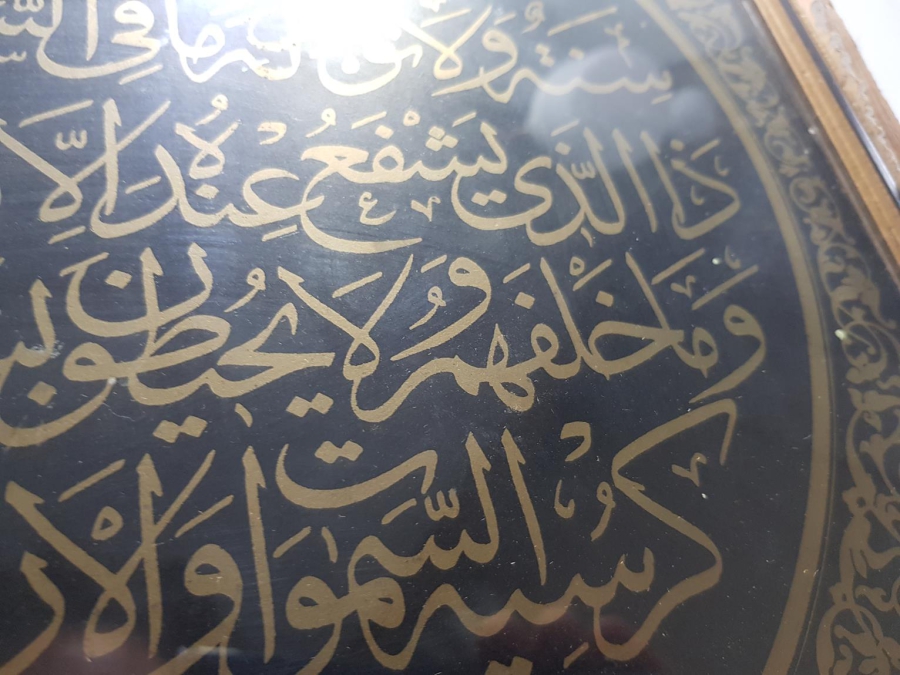 سِنَةٌ وَلَا نَوْمٌ لَهُ مَا فِي السَّ
ذَا الَّذِي يَشْفَعُ عِنْدَهُ إِلَّا
وَمَا خَلْفَهُمْ وَلَا يُحِيطُونَ بِشَ
كُرْسِيُّهُ السَّمٰوَاتِ وَالْاَرْ